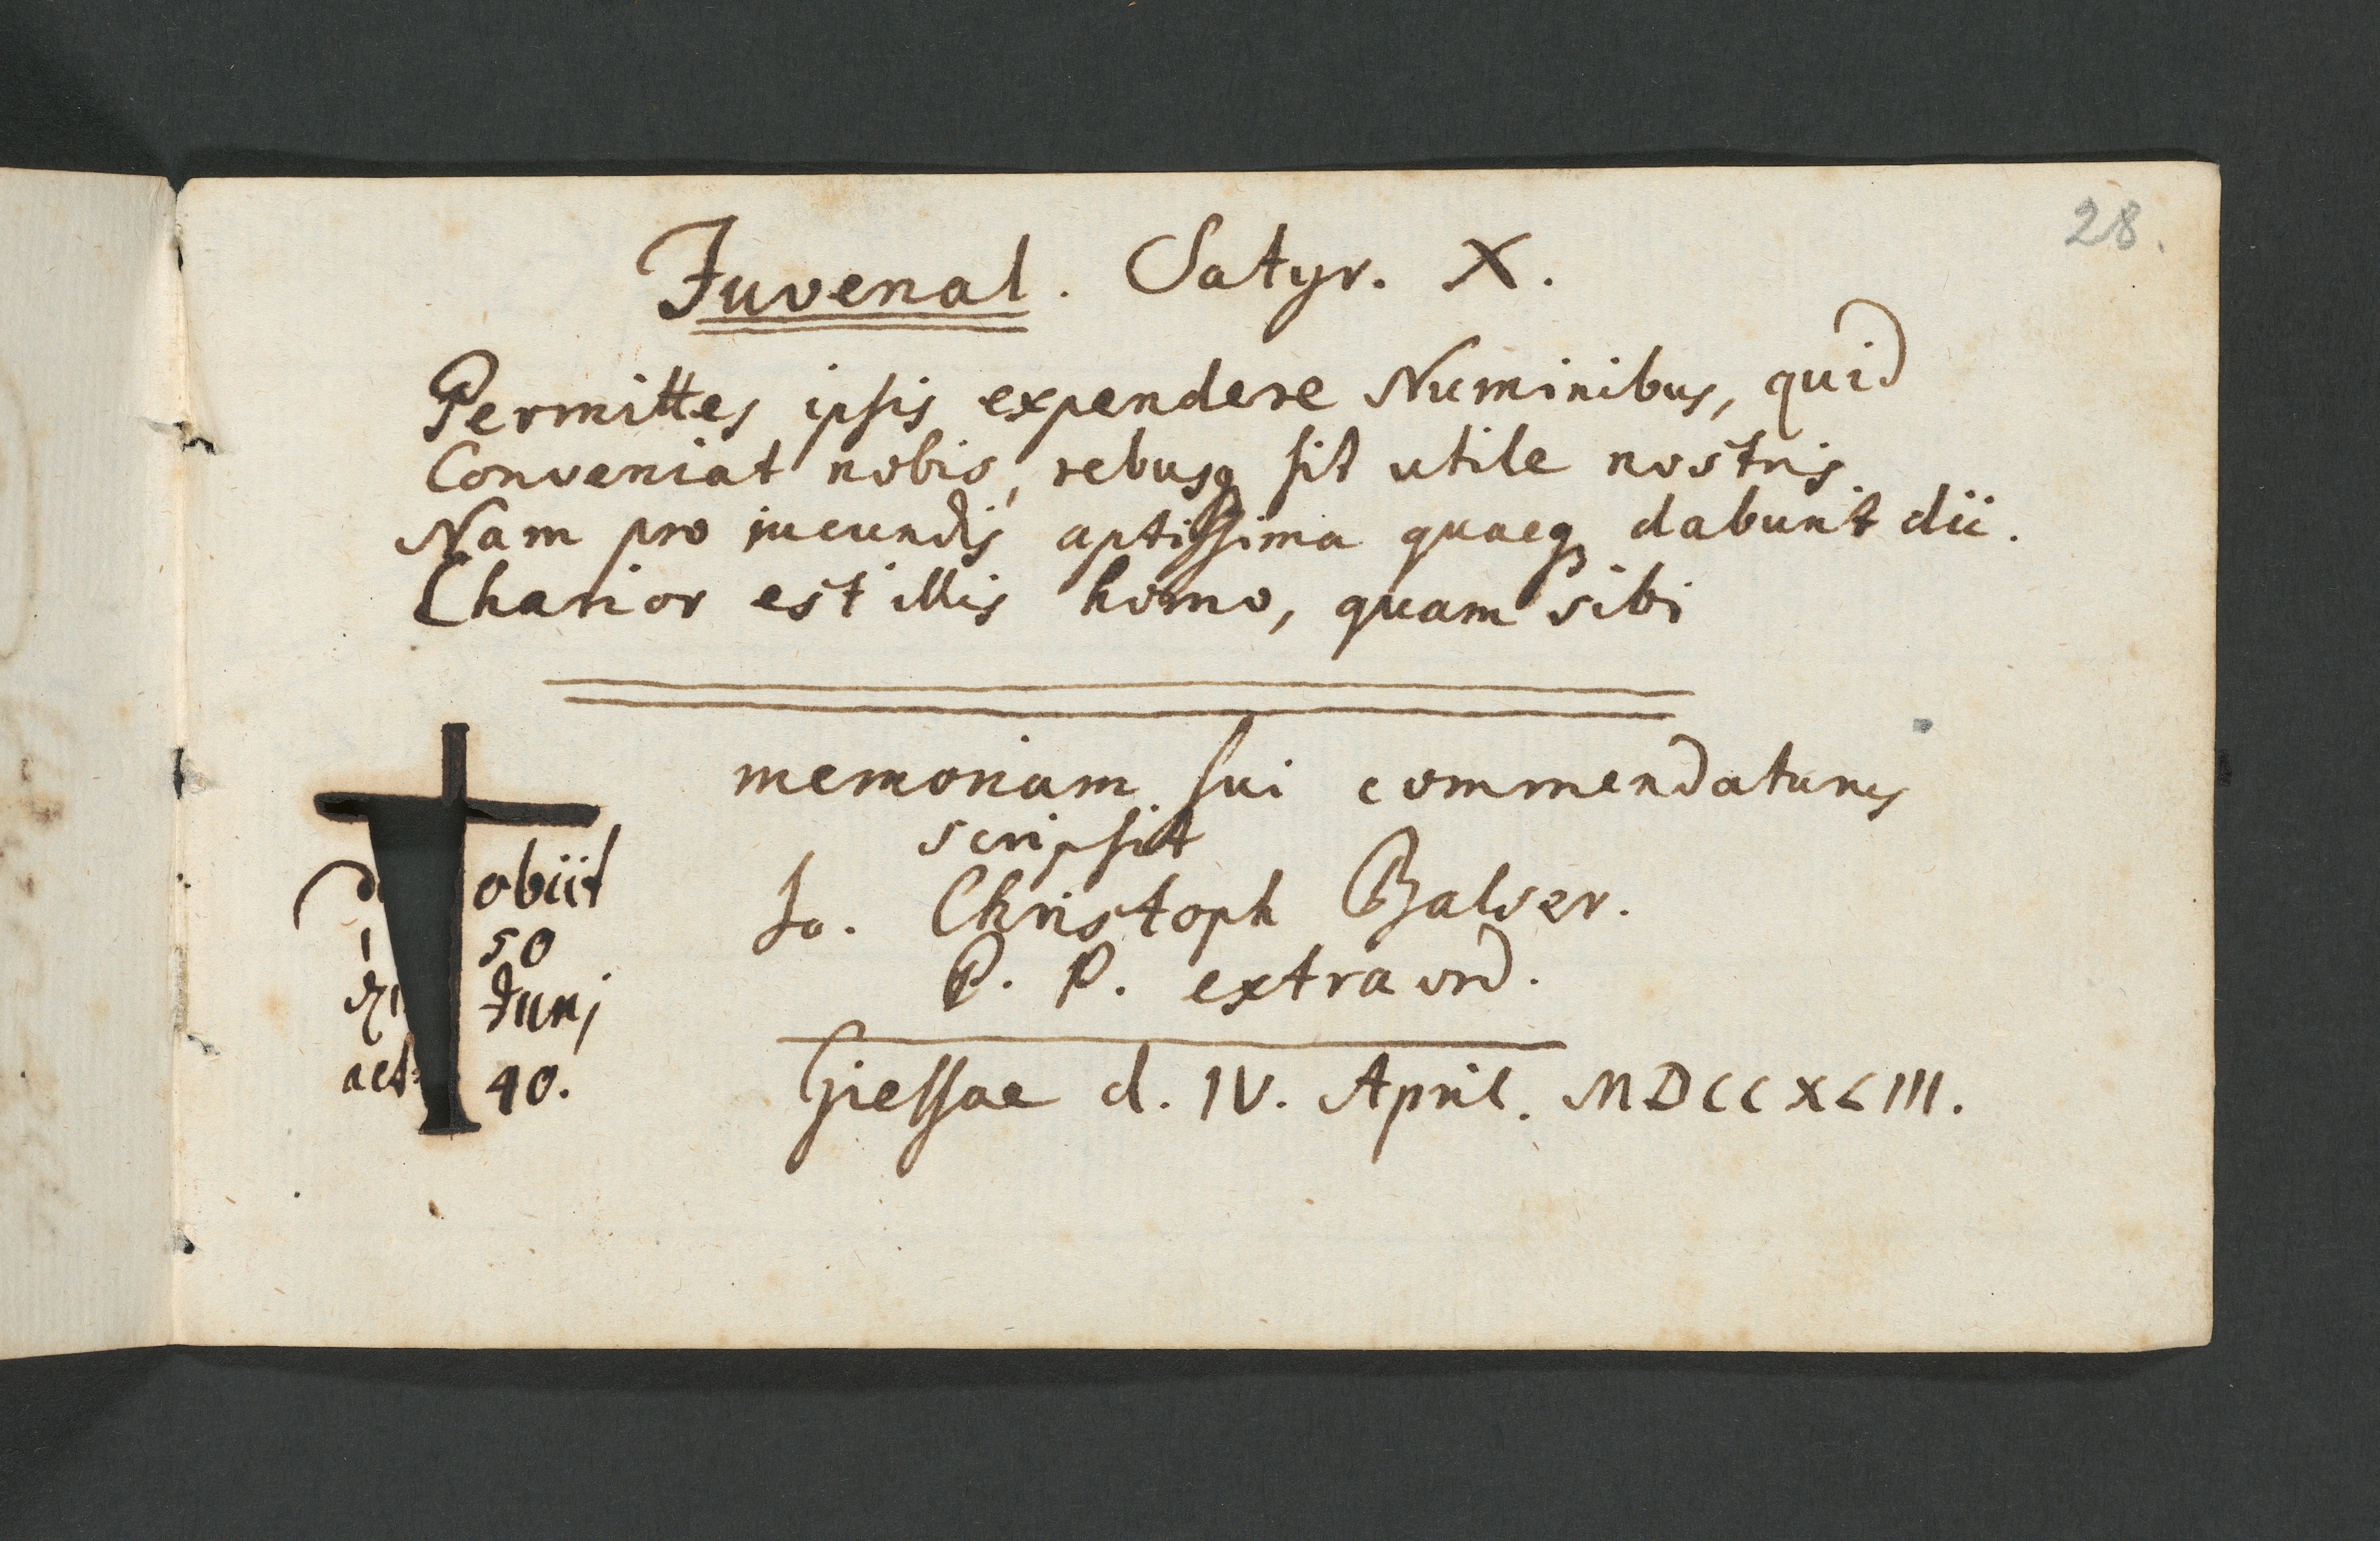 28.
Juvenal. Satyr. X.
Permittes ipsis expendere Numinibus, quid
Conveniat nobis, rebusq sit utile nostris.
Nam pro iucundis aptissima quaeq dabunt dii.
Charior est illis homo, quam sibi
memoriam sui commendaturus
scripsit
Jo. Christoph Balser.
P. P. extraord.
Giessae d. IV. April. MDCCXLIII.
obiit
50
Junj
aet 40.